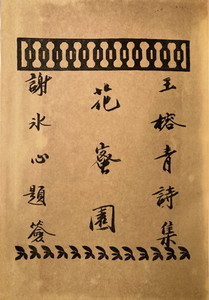 王榕青詩集
花蜜園
謝冰心題簽